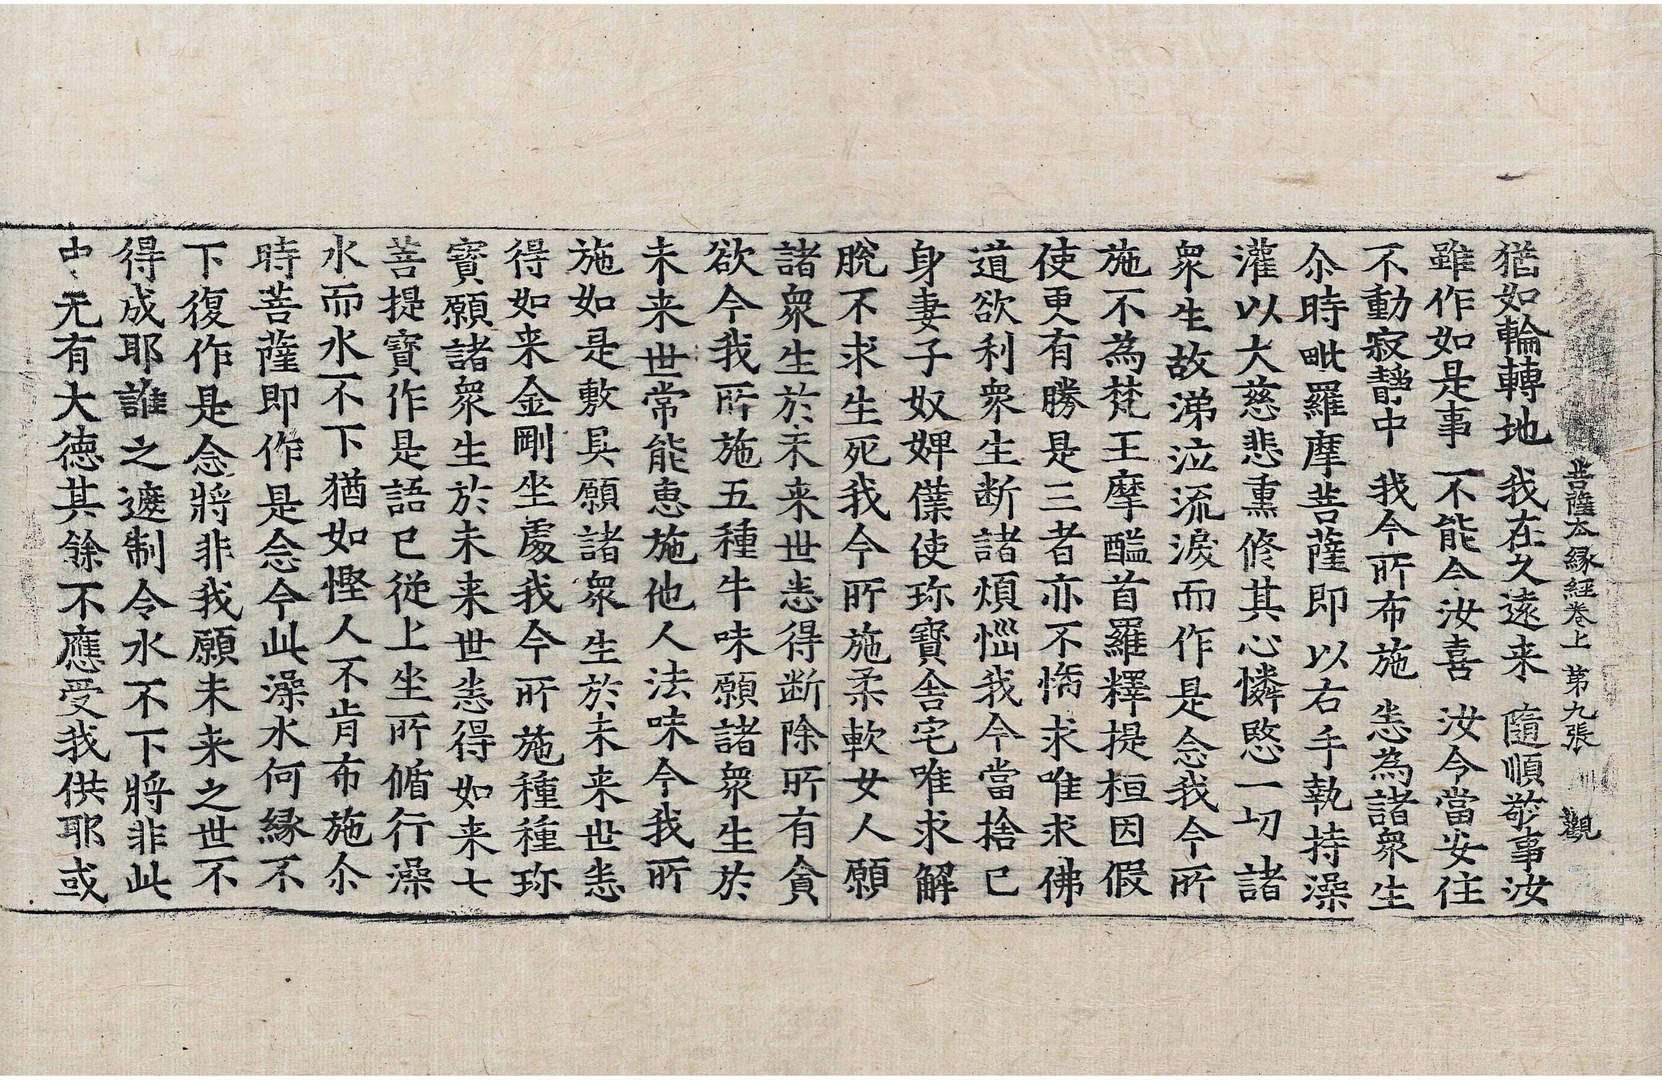 菩薩本縁経卷上　第九張　觀
猶如輪轉地　我在久遠来　隨順敬事汝
雖作如是事　不能令汝喜　汝今當安住
不動寂静中　我今所布施　悉為諸衆生
尒時毗羅摩菩薩即以右手執持澡
灌以大慈悲熏脩其心憐愍一切諸
衆生故涕泣流淚而作是念我今所
施不為梵王摩醯首羅釋提桓因假
使更有勝是三者亦不悕求唯求佛
道欲利衆生断諸煩惱我今當捨己
身妻子奴婢僕使珎寳舎宅唯求解
脫不求生死我今所施柔軟女人願
諸衆生於未来世悉得断除所有貪
欲今我所施五種牛味願諸衆生於
未来世常能惠施他人法味今我所
施如是敷具願諸衆生於未来世悉
得如来金剛坐處我今所施種種珎
寳願諸衆生於未来世悉得如来七
菩提寳作是語已從上坐所脩行澡
水而水不下猶如慳人不肯布施尒
時菩薩即作是念今此澡水何縁不
下復作是念將非我願未来之世不
得成耶誰之遮制令水不下將非此
中无有大德其餘不應受我供耶或